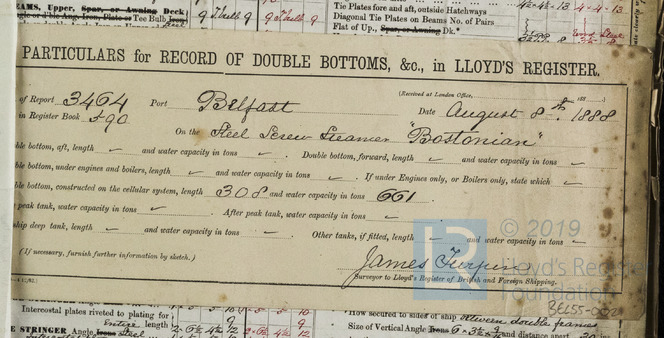 EAMS, Upper, Spar, or Awning Deck
gle or d'ble Ang. Iron, Plate or Tee Bulb Iron
Tie Plates fore and aft, outside Hatchways
Diagonal Tie Plates on Beams No. of Pairs
Flat of Up., Spar, or Awning Dk.*
PARTICULARS for RECORD OF DOUBLE BOTTOMS, &c., in LLOYD'S REGISTER.
(Received at London Office, 188 .)
of Report 3464 Port Belfast Date August 8th 1888
in Register Book 590
On the Steel Screw Steamer "Bostonian"
ble bottom, aft, length and water capacity in tons . Double bottom, forward, length and water capacity in tons
ble bottom, under engines and boilers, length and water capacity in tons . If under Engines only, or Boilers only, state which
ble bottom, constructed on the cellular system, length 308 and water capacity in tons 661 .
peak tank, water capacity in tons . After peak tank, water capacity in tons
ship deep tank, length and water capacity in tons . Other tanks, if fitted, length and water capacity in tons
(If necessary, furnish further information by sketch.)
James Turpin
Surveyor to Lloyd's Register of British and Foreign Shipping.
© 2019
Lloyd's Register
Foundation
Intercostal plates riveted to plating for
Entire length
STRINGER Angle
how secured to sides of ship between double frames
Size of Vertical Angle Irons
and distance apart